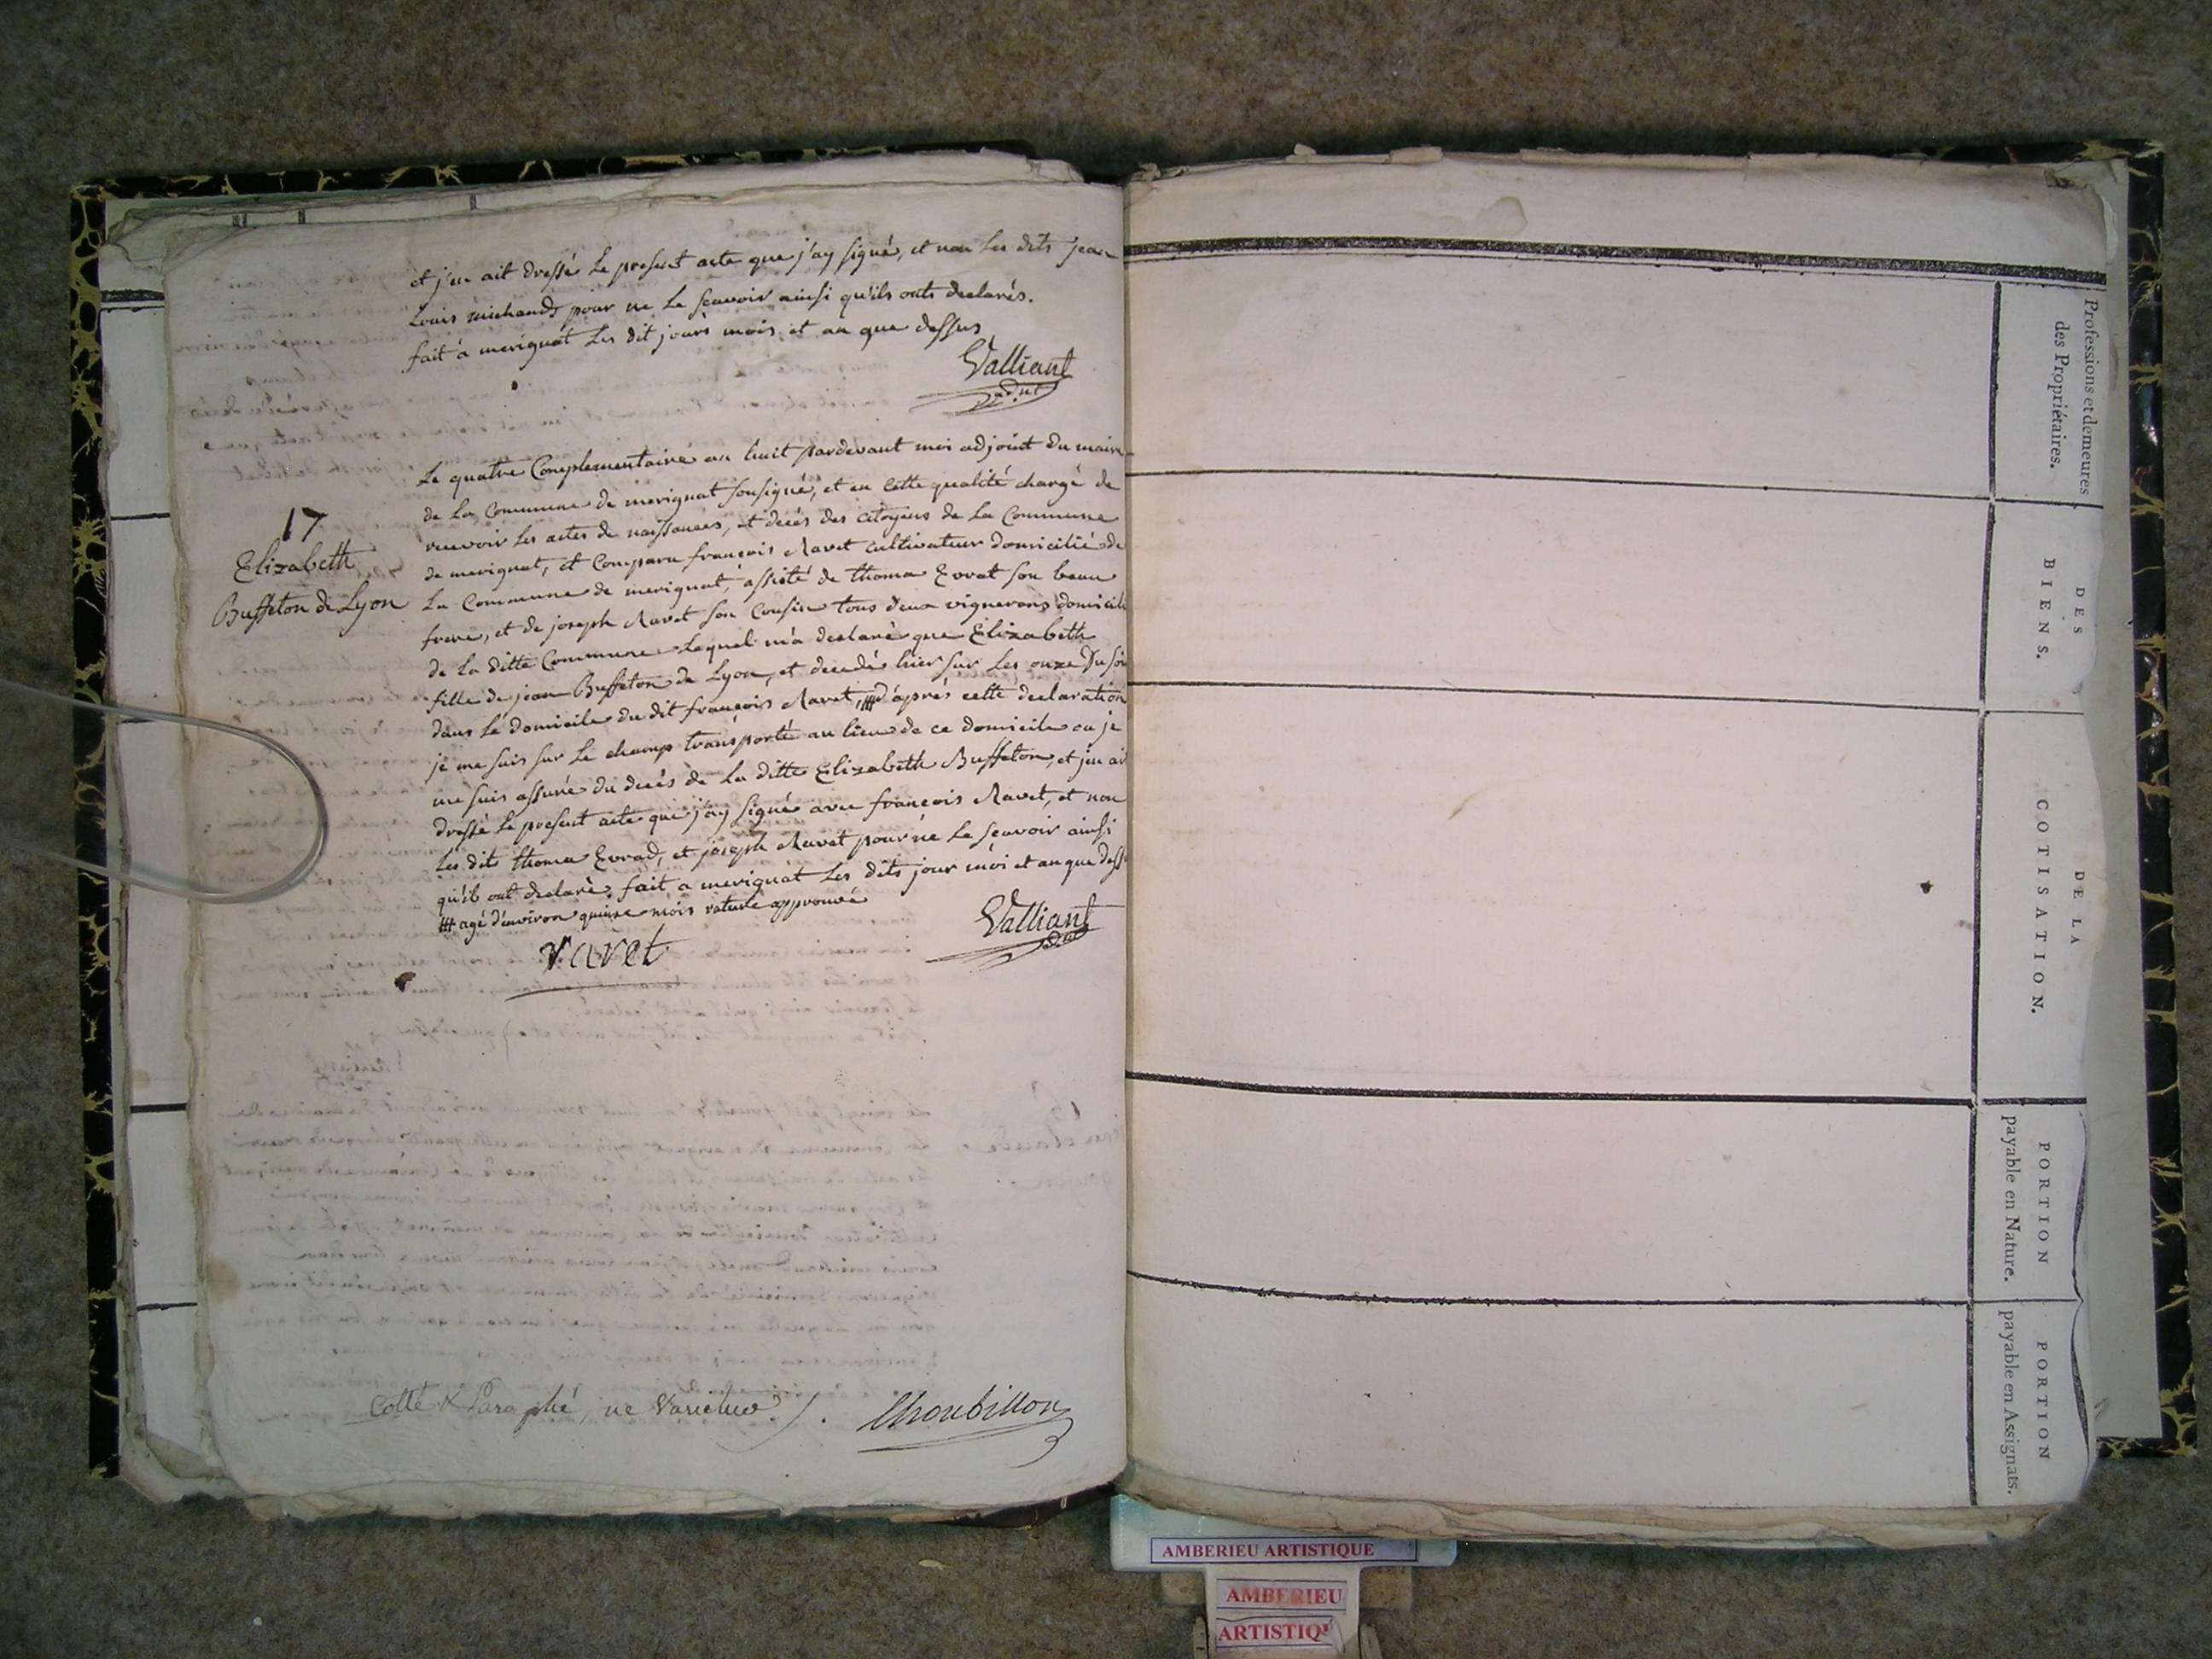 et j'en ait dressé le present acte que j'ay signé, et non les dits jean
Louis michaud pour ne le scavoir ainsi qu'ils onts declarés.
fait á merignat les dit jours mois et an que dessus
Valliant
adjnt
17
Elizabeth
Buffeton de Lyon
Le quatre Complementaire an huit pardevant moi adjoint du maire
de la Commune de merignat sousigné, et en cette qualité chargé de
recevoir les actes de naissances, et décés des citoyens de la Commune
de merignat, et Comparu françois Ravet cultivateur domicilié de
la Commune de merignat, assisté de thoma Evrat son beau
frere, et de joseph Ravet son Cousin tous deux vignerons domicili
de la ditte Commune Lequel m'a declaré que Elizabeth
fille de jean Buffeton de Lyon, et decedé hier sur les onze du soir
dans le domicile du dit françois Ravet, # d'aprés cette declaration
je me suis sur le champ transporté au lieu de ce domicile ou je
me suis assuré du decés de la ditte Elizabeth Buffeton, et j'en ai
dressé le present acte que j'ay signé avec françois Ravet, et non
les dits thoma Evrad, et joseph Ravet pour ne le scavoir ainsi
qu'ils ont declaré. fait a merignat les dits jour moi et an que dess
# agé d'environ quinze mois rature approuvé
Valliant
adjnt
ravet
Cotté & Paraphé, ne Varietur
Professions et demeures
des Propriétaires.
DES
BIENS.
DE LA
COTISATION.
PORTION
payable en Nature.
PORTION
payable en Assignats.
AMBERIEU ARTISTIQUE
AMBERIEU
ARTISTIQ